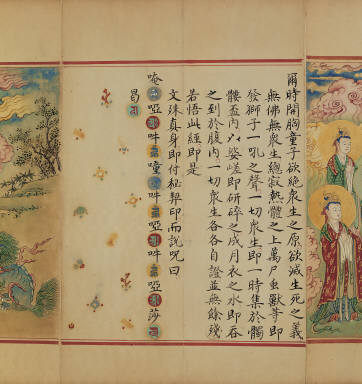 爾時開胸童子欲絶衆生之原欲滅生死之義
無佛無衆生總寂熱體之上萬尸蟲獸等即
發獅子一吼之聲一切衆生即一時集於髑
髏盃内以娑嵯即研碎之成月衣之水即吞
之到於腹内一切衆生各各自證並無餘殘
若悟此經即是
文殊真身即付秘契印而説呪曰
唵啞吽㘕吽啞吽啞莎
曷